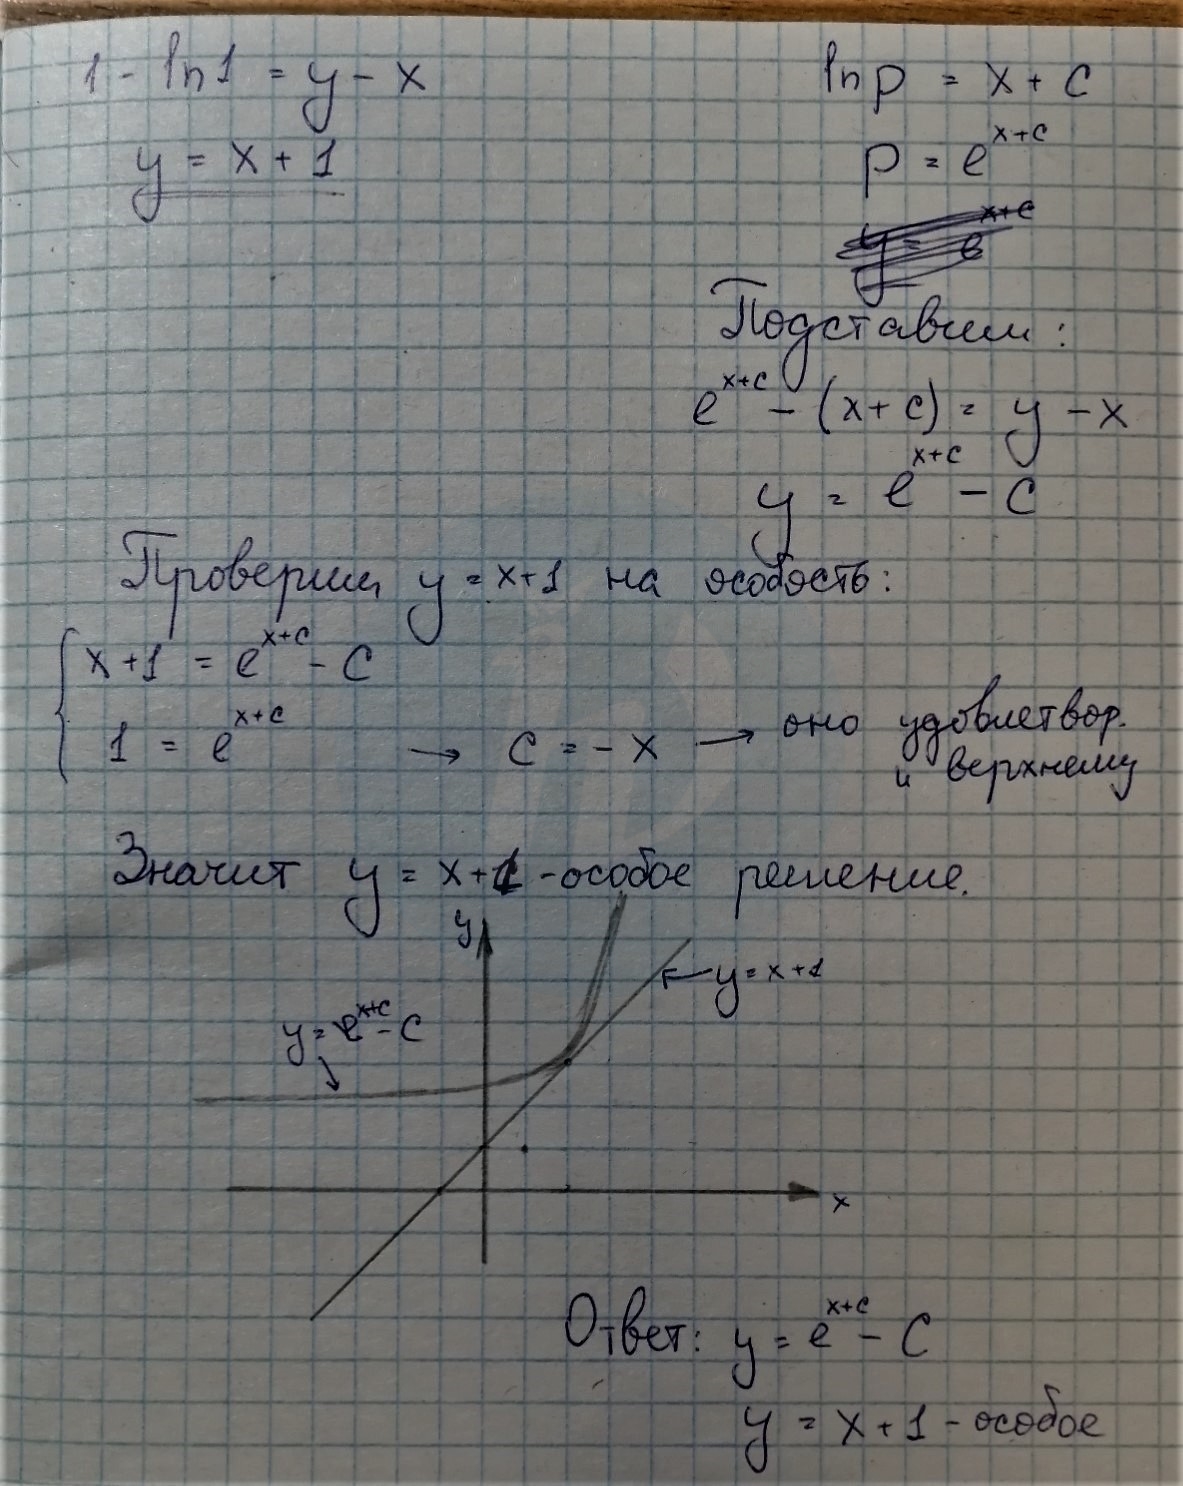 1 - ln 1 = y - x
y = x + 1
ln p = x + c
p = e^{x+c}
y = e^{x+c}
Подставим:
e^{x+c} - (x + c) = y - x
y = e^{x+c} - C
Проверим y = x+1 на особость:
x + 1 = e^{x+c} - C
1 = e^{x+c} → C = - x → оно удовлетвор.
и верхнему
Значит y = x + 1 - особое решение.
y
y = x + 1
y = e^{x+c} - C
x
Ответ: y = e^{x+c} - C
y = x + 1 - особое